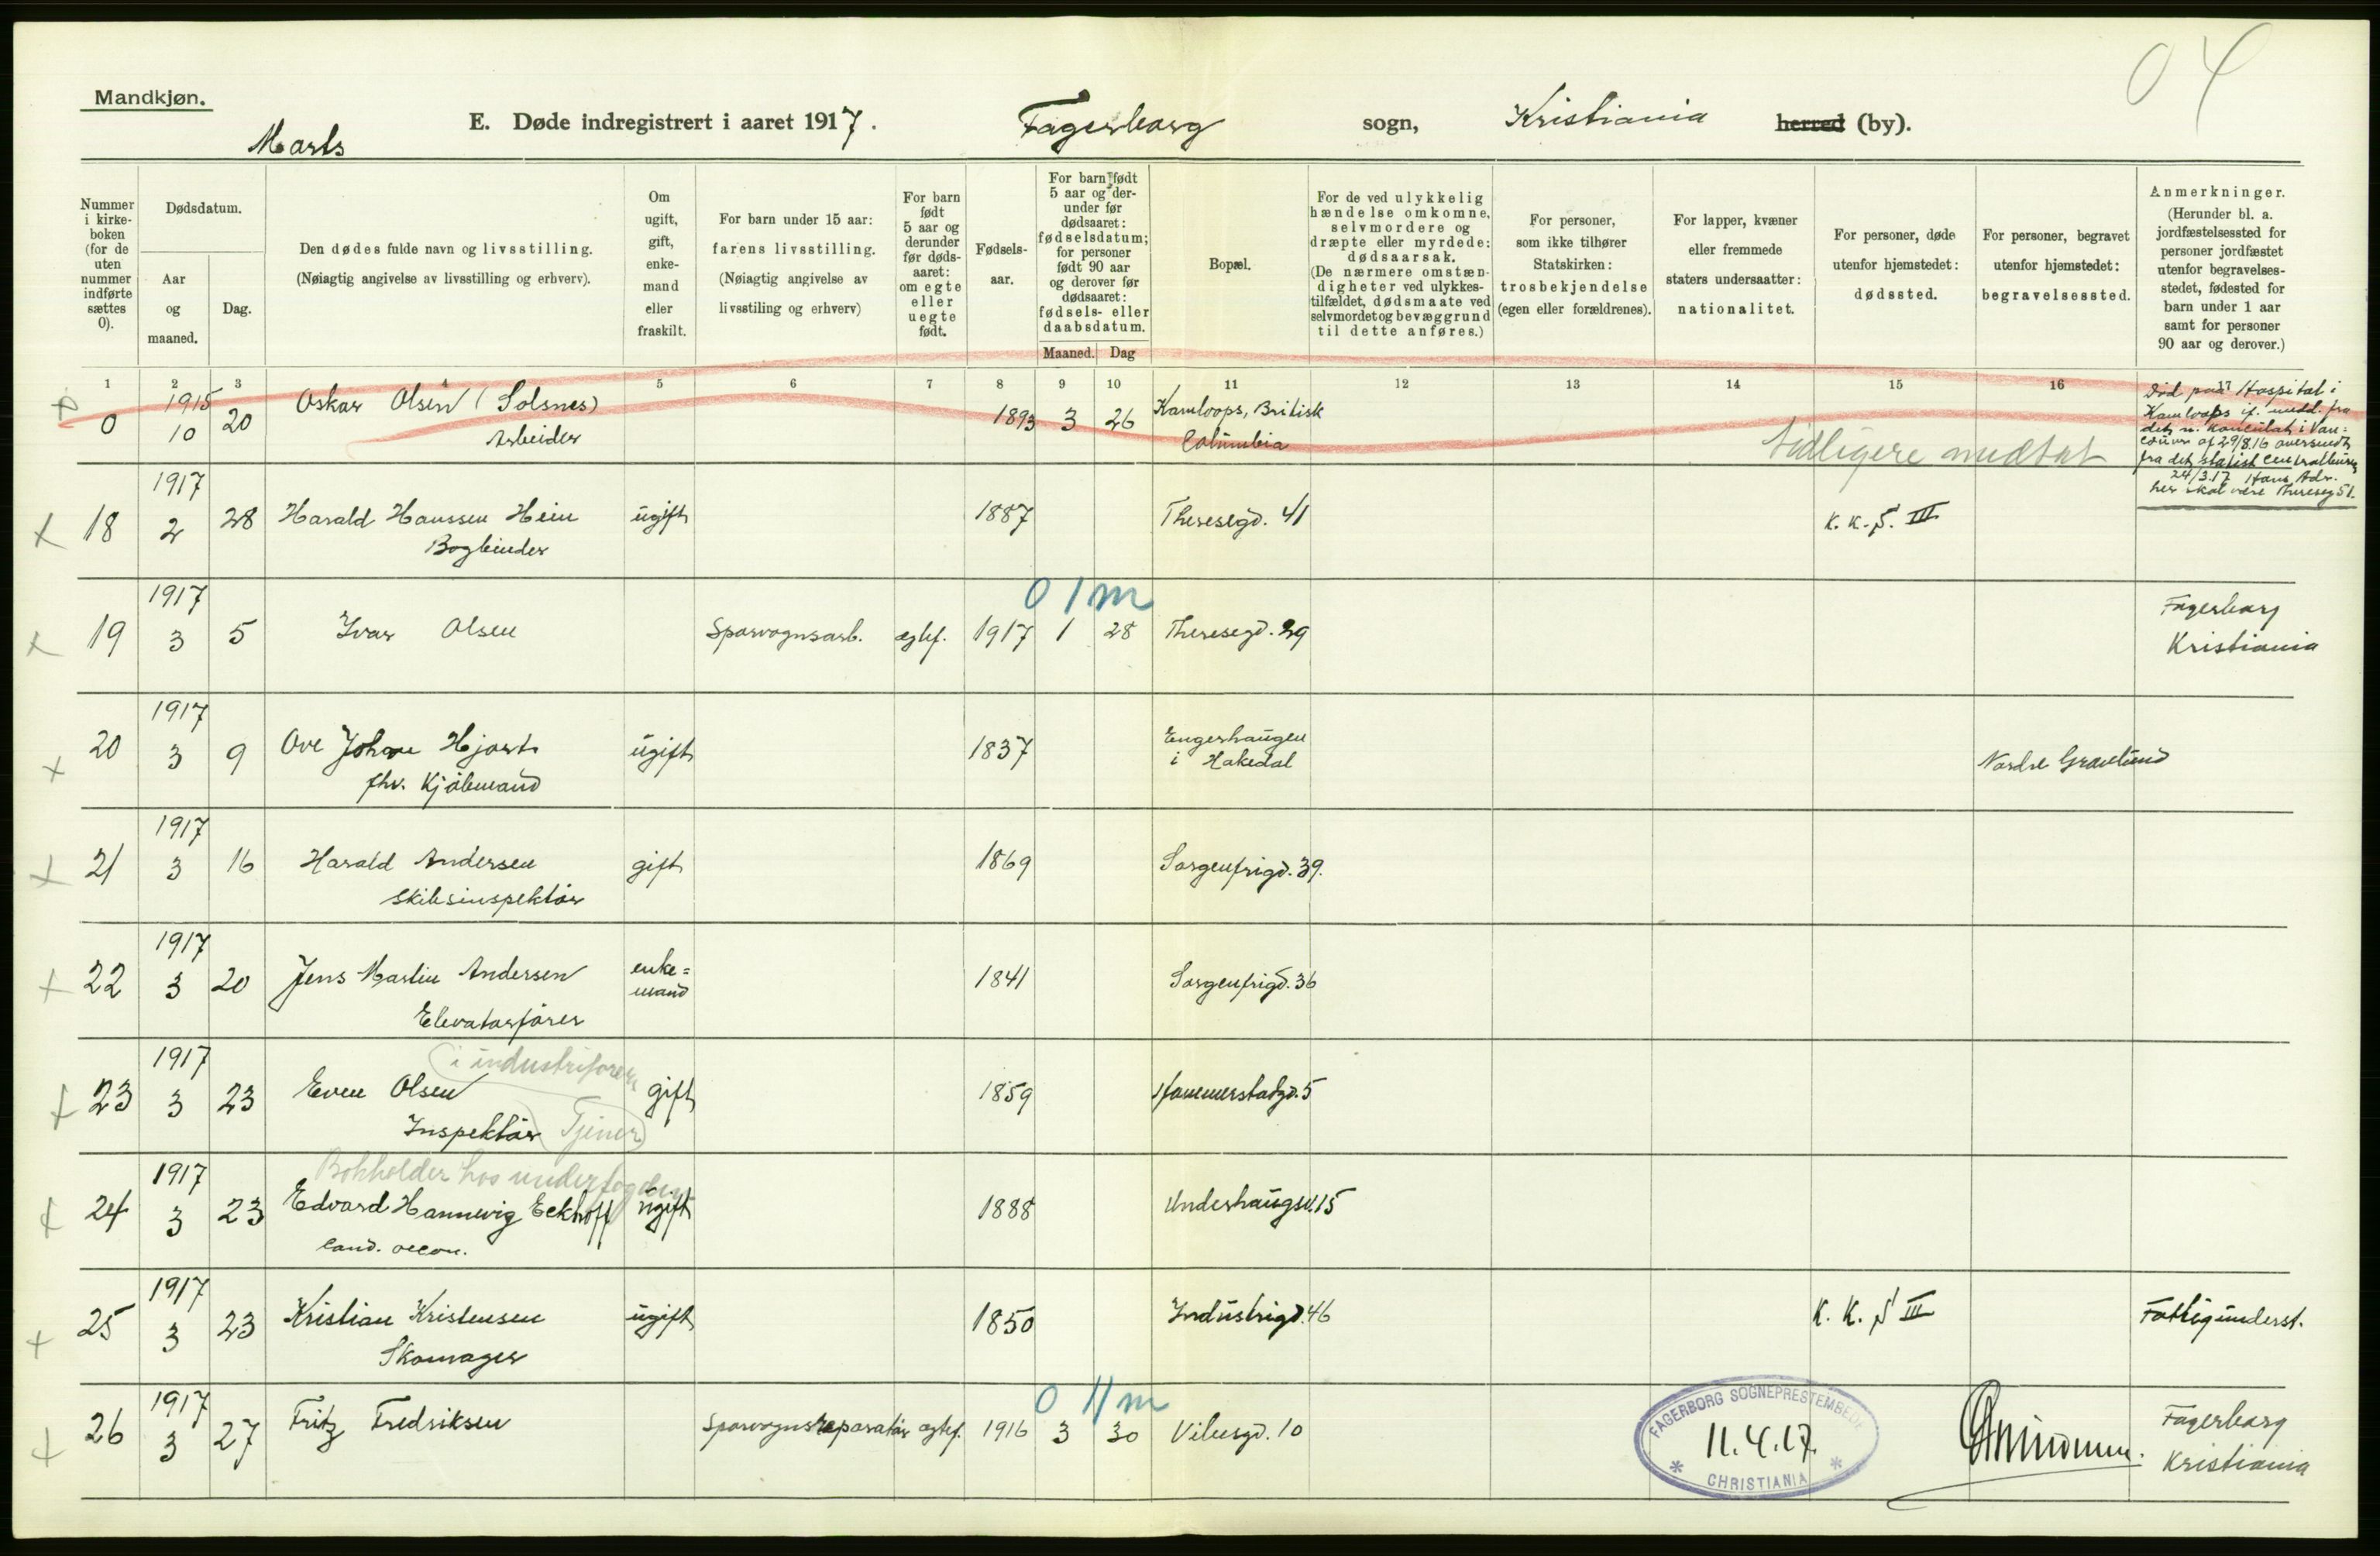 04
Mandkjøn.
Marts
E. Døde indregistrert i aaret 1917.
Fagerborg sogn, Kristiania herred (by).
Nummer i kirkeboken (for de uten nummer indførte sættes 0).
Dødsdatum.
Aar og maaned.
Dag.
Den dødes fulde navn og livsstilling.
(Nøiagtig angivelse av livsstilling og erhverv).
Om ugift, gift, enkemand eller fraskilt.
For barn under 15 aar: farens livsstilling.
(Nøiagtig angivelse av livsstiling og erhverv)
For barn født 5 aar og derunder før dødsaaret: om egte eller uegte født.
Fødselsaar.
For barn født 5 aar og derunder før dødsaaret: fødselsdatum; for personer født 90 aar og derover før dødsaaret: fødsels- eller daabsdatum.
Maaned. Dag
Bopæl.
For de ved ulykkelig hændelse omkomne, selvmordere og dræpte eller myrdede: dødsaarsak.
(De nærmere omstændigheter ved ulykkestilfældet, dødsmaate ved selvmordet og bevæggrund til dette anføres.)
For personer, som ikke tilhører Statskirken: trosbekjendelse (egen eller forældrenes).
For lapper, kvæner eller fremmede staters undersaatter: nationalitet.
For personer, døde utenfor hjemstedet: dødssted.
For personer, begravet utenfor hjemstedet: begravelsessted.
Anmerkninger.
(Herunder bl. a. jordfæstelsessted for personer jordfæstet utenfor begravelsesstedet, fødested for barn under 1 aar samt for personer 90 aar og derover.)
1 2 3 4 5 6 7 8 9 10 11 12 13 14 15 16 17
0 1915 10 20 Oskar Olsen (Solsnes) Arbeider 1893 3 26 Kamloops, Britisk Columbia tidligere medtat
Död paa Hospital i
Kamloops if. medd. fra
det n. konsulat i Van=
couver af 29/8.16 oversendt
fra det statist. Centralbureau
24/3.17 Hans Adr.
her skal være Thereseg 51.
18 1917 2 28 Harald Hanssen Heim Bogbinder ugift 1887 Theresegd. 41 K. K. S. III
0 1 m
19 1917 3 5 Ivar Olsen Sporvognsarb. egtef. 1917 1 28 Theresegd. 29 Fagerborg Kristiania
20 1917 3 9 Ove Johan Hjort fhv. Kjøbmand ugift 1837 Engerhaugen i Hakedal Nordre Gravlund
21 1917 3 16 Harald Andersen Skibsinspektør gift 1869 Sorgenfrigd. 39.
22 1917 3 20 Jens Martin Andersen Elevatorfører enke= mand 1841 Sorgenfrigd. 36
(i industriforen
23 1917 3 23 Even Olsen Inspektør (Tjener) gift 1859 Hammerstadgd. 5
Bokholder hos underfogden
24 1917 3 23 Edvard Hannevig Eckhoff cand. oecon. ugift 1888 Underhaugsv. 15
25 1917 3 23 Kristian Kristensen Skomager ugift 1850 Industrigd. 46 K. K. S III Fattigunderst.
0 11 m
26 1917 3 27 Fritz Fredriksen Sporvognsreparatør egtef. 1916 3 30 Vibesgd. 10 Fagerborg Kristiania
FAGERBORG SOGNEPRESTEMBEDE
11.4.17.
* CHRISTIANIA *